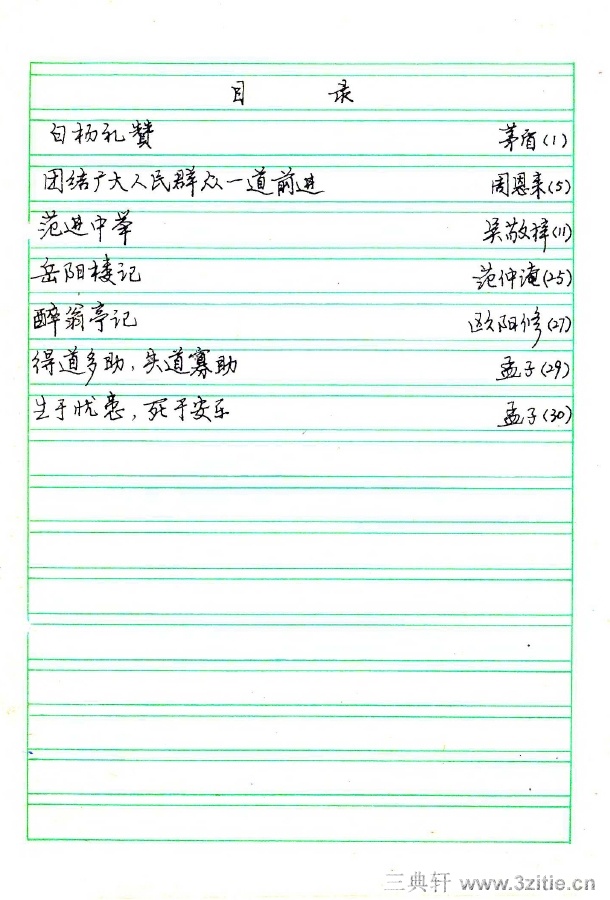 目 录
白杨礼赞 茅盾(1)
团结广大人民群众一道前进 周恩来(5)
范进中举 吴敬梓(11)
岳阳楼记 范仲淹(25)
醉翁亭记 欧阳修(27)
得道多助,失道寡助 孟子(29)
生于忧患,死于安乐 孟子(30)
三典轩 www.3zitie.cn